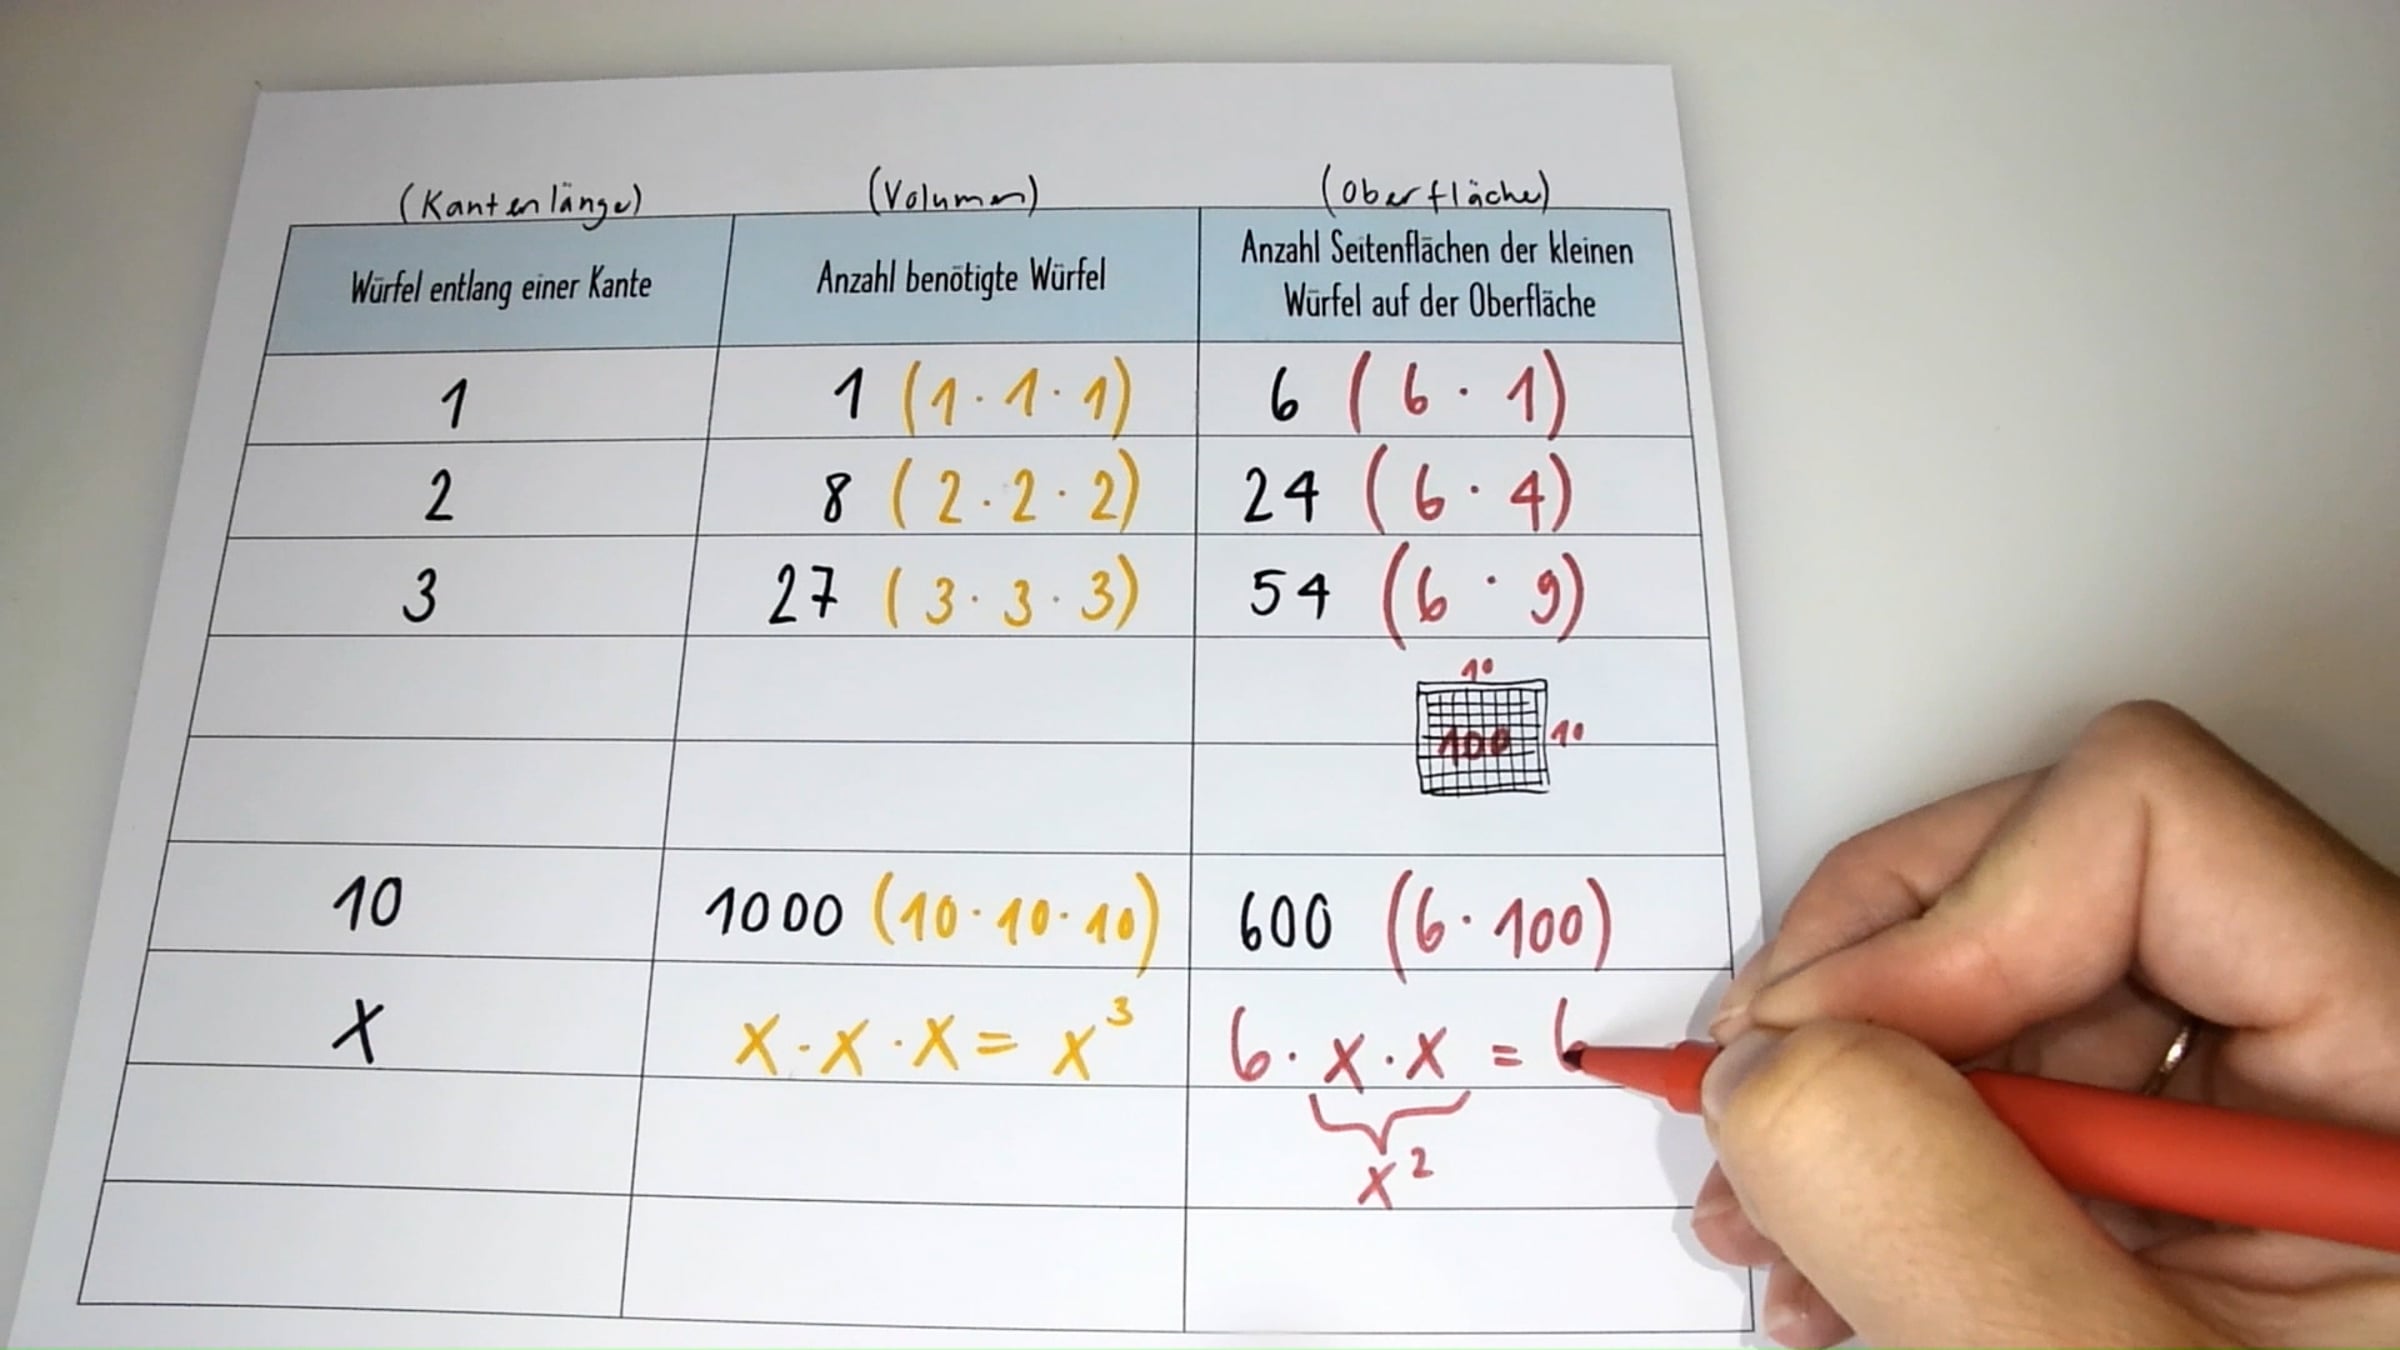 (Kantenlänge) (Volumen) (Oberfläche)
Würfel entlang einer Kante
Anzahl benötigte Würfel
Anzahl Seitenflächen der kleinen
Würfel auf der Oberfläche
1 1 (1 · 1 · 1) 6 (6 · 1)
2 8 (2 · 2 · 2) 24 (6 · 4)
3 27 (3 · 3 · 3) 54 (6 · 9)
10
100 10
10 1000 (10 · 10 · 10) 600 (6 · 100)
x x · x · x = x³ 6 · x · x = 6
x²